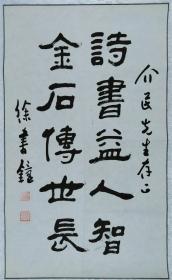 介民先生存正
詩書益人智
金石傳世長
徐書鐘